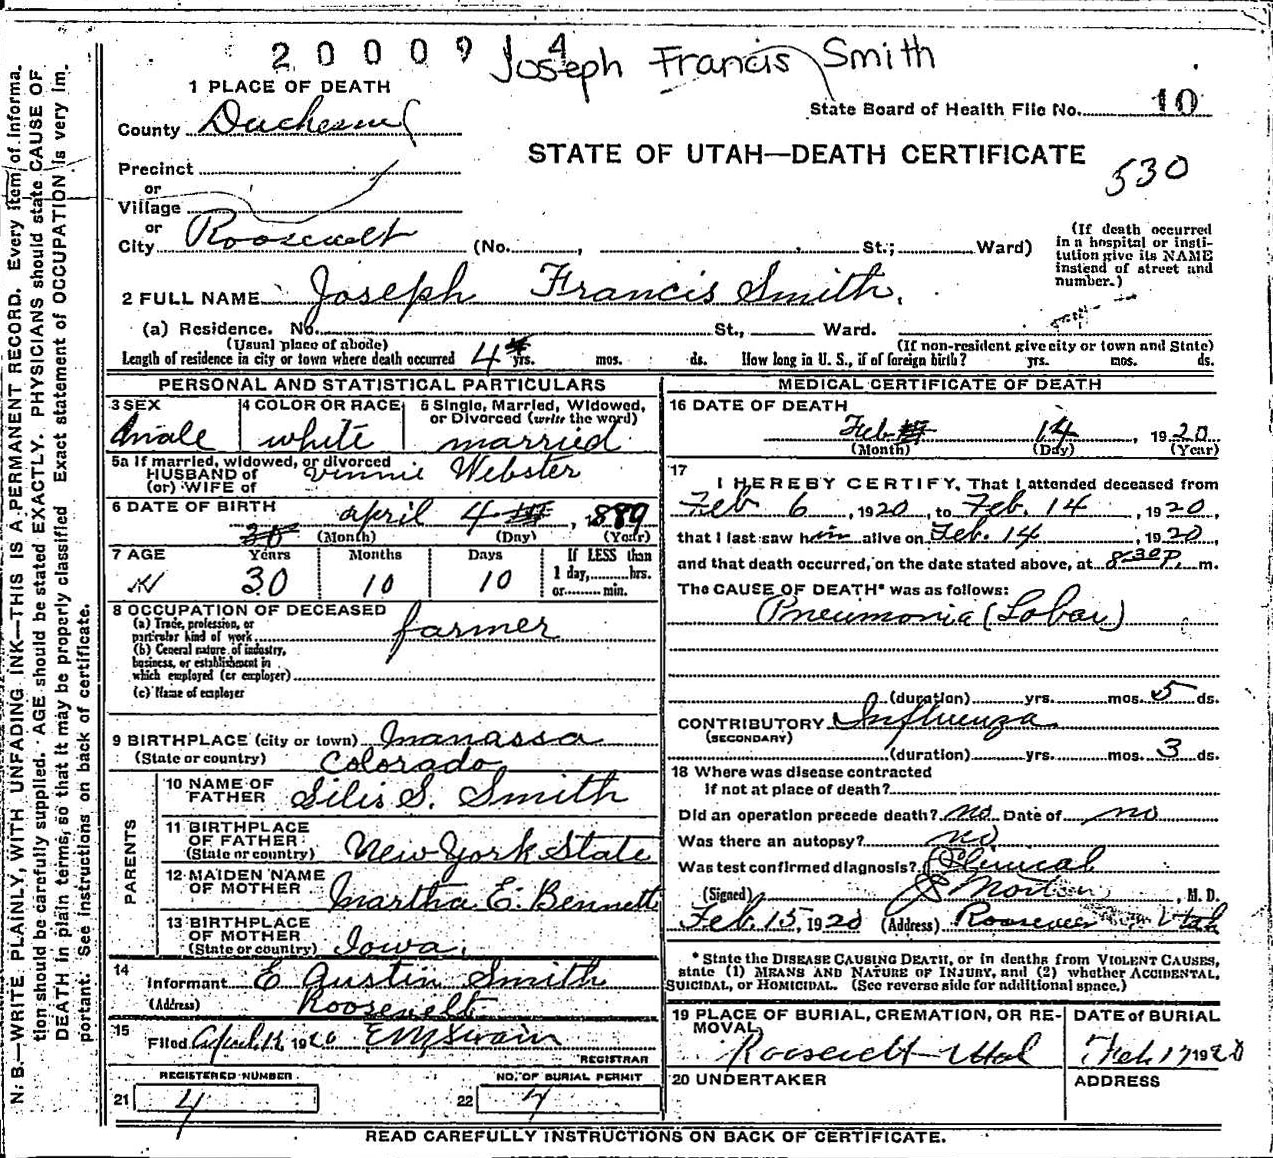 20009 4
Joseph Francis Smith
1 PLACE OF DEATH
State Board of Health File No. 10
County Duchesne
STATE OF UTAH—DEATH CERTIFICATE
530
Precinct
or
Village
or
City Roosevelt (No. , St.; Ward)
(If death occurred
in a hospital or insti-
tution give its NAME
instead of street and
number.)
2 FULL NAME Joseph Francis Smith.
(a) Residence. No. St., Ward.
(Usual place of abode) (If non-resident give city or town and State)
Length of residence in city or town where death occurred 4 yrs. mos. ds. How long in U. S., if of foreign birth? yrs. mos. ds.
PERSONAL AND STATISTICAL PARTICULARS
3 SEX
male
4 COLOR OR RACE
white
5 Single, Married, Widowed,
or Divorced (write the word)
married
5a If married, widowed, or divorced
HUSBAND of
(or) WIFE of
Vinnie Webster
6 DATE OF BIRTH
April 4, 1889
(Month) (Day) (Year)
7 AGE
Years Months Days
30 10 10
If LESS than
1 day, hrs.
or min.
8 OCCUPATION OF DECEASED
(a) Trade, profession, or
particular kind of work farmer
(b) General nature of industry,
business, or establishment in
which employed (or employer)
(c) Name of employer
9 BIRTHPLACE (city or town) Manassa
(State or country) Colorado
PARENTS
10 NAME OF
FATHER Silis S. Smith
11 BIRTHPLACE
OF FATHER
(State or country) New York State
12 MAIDEN NAME
OF MOTHER Martha E. Bennett
13 BIRTHPLACE
OF MOTHER
(State or country) Iowa.
14
Informant E Austin Smith
(Address) Roosevelt
15
Filed April 12 1920 E M Swain
REGISTRAR
REGISTERED NUMBER NO. OF BURIAL PERMIT
21 4 22 4
MEDICAL CERTIFICATE OF DEATH
16 DATE OF DEATH
Feb 14, 1920
(Month) (Day) (Year)
17
I HEREBY CERTIFY, That I attended deceased from
Feb 6, 1920, to Feb. 14, 1920,
that I last saw him alive on Feb. 14, 1920,
and that death occurred, on the date stated above, at 8:30 P. m.
The CAUSE OF DEATH* was as follows:
Pneumonia (Lobar)
(duration) yrs. mos. 5 ds.
CONTRIBUTORY Influenza
(SECONDARY)
(duration) yrs. mos. 3 ds.
18 Where was disease contracted
If not at place of death?
Did an operation precede death? no Date of no
Was there an autopsy? no
Was test confirmed diagnosis? Clinical
(Signed) J E Morton, M. D.
Feb. 15, 1920 (Address) Roosevelt Utah
* State the DISEASE CAUSING DEATH, or in deaths from VIOLENT CAUSES,
state (1) MEANS AND NATURE OF INJURY, and (2) whether ACCIDENTAL,
SUICIDAL, or HOMICIDAL. (See reverse side for additional space.)
19 PLACE OF BURIAL, CREMATION, OR RE-
MOVAL
Roosevelt Utah
DATE of BURIAL
Feb 17 1920
20 UNDERTAKER
ADDRESS
READ CAREFULLY INSTRUCTIONS ON BACK OF CERTIFICATE.
N. B.—WRITE PLAINLY, WITH UNFADING INK—THIS IS A PERMANENT RECORD. Every item of informa-
tion should be carefully supplied. AGE should be stated EXACTLY. PHYSICIANS should state CAUSE OF
DEATH in plain terms, so that it may be properly classified. Exact statement of OCCUPATION is very im-
portant. See instructions on back of certificate.